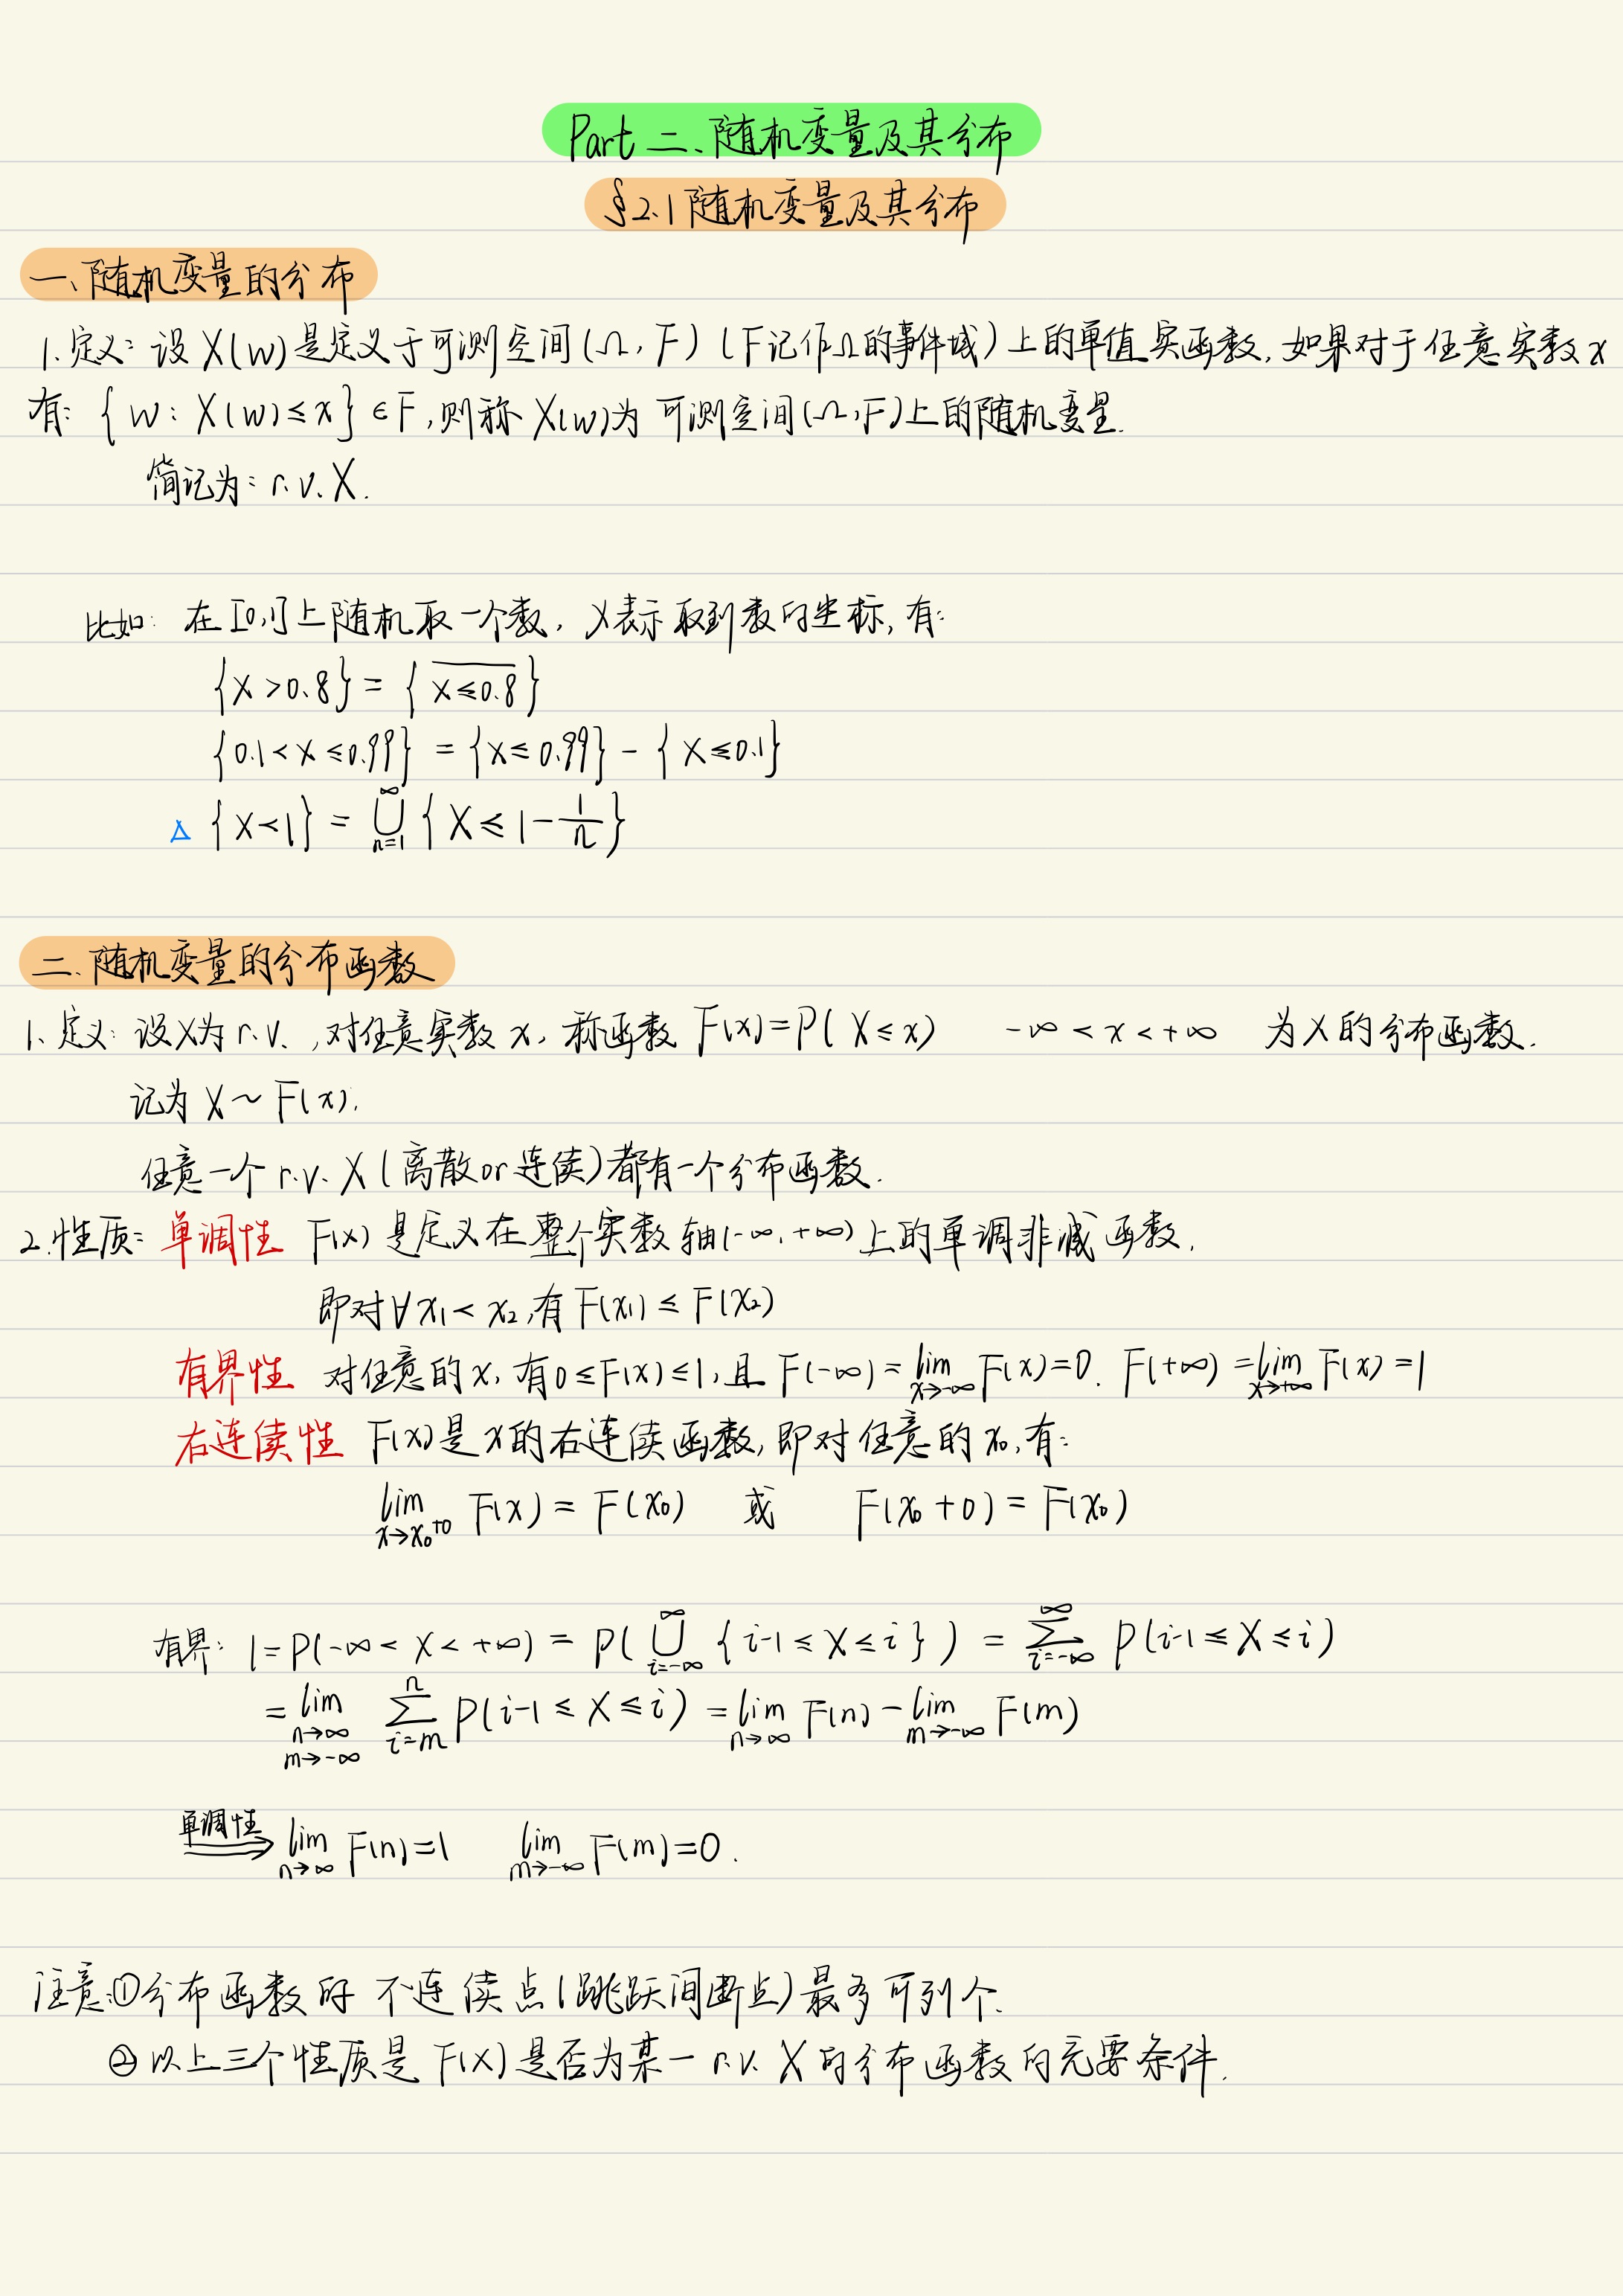 Part 二、随机变量及其分布
§2.1 随机变量及其分布
一、随机变量的分布
1. 定义：设 X(w) 是定义于可测空间(Ω, F) (F记作Ω的事件域) 上的单值实函数, 如果对于任意实数 x
有：{ w : X(w) ≤ x } ∈ F, 则称 X(w)为 可测空间(Ω, F)上的随机变量.
简记为：r.v. X.
比如：在[0,1]上随机取一个数, X表示取到数的坐标, 有：
{X > 0.8} = { \overline{X ≤ 0.8} }
{0.1 < X ≤ 0.99} = {X ≤ 0.99} - { X ≤ 0.1}
△ {X < 1} = \bigcup_{n=1}^{∞} { X ≤ 1 - \frac{1}{n} }
二、随机变量的分布函数
1. 定义：设X为 r.v. , 对任意实数 x, 称函数 F(x) = P( X ≤ x) -∞ < x < +∞ 为 X 的分布函数.
记为 X ~ F(x).
任意一个 r.v. X (离散or连续) 都有一个分布函数.
2. 性质：单调性 F(x) 是定义在整个实数轴(-∞, +∞) 上的单调非减函数.
即对∀ x₁ < x₂, 有 F(x₁) ≤ F(x₂)
有界性 对任意的 x, 有 0 ≤ F(x) ≤ 1, 且 F(-∞) = \lim_{x→-∞} F(x) = 0. F(+∞) = \lim_{x→+∞} F(x) = 1
右连续性 F(x)是 x的右连续函数, 即对任意的 x₀, 有：
\lim_{x→x₀+0} F(x) = F(x₀) 或 F(x₀ + 0) = F(x₀)
有界：1 = P(-∞ < X < +∞) = P( \bigcup_{i=-∞}^{∞} { i-1 ≤ X ≤ i } ) = \sum_{i=-∞}^{∞} P(i-1 ≤ X ≤ i)
= \lim_{n→∞ m→-∞} \sum_{i=m}^{n} P(i-1 ≤ X ≤ i) = \lim_{n→∞} F(n) - \lim_{m→-∞} F(m)
单调性⟹ \lim_{n→∞} F(n) = 1 \lim_{m→-∞} F(m) = 0.
注意：①分布函数的 不连续点(跳跃间断点)最多可列个.
② 以上三个性质是 F(x) 是否为某一 r.v. X 的分布函数的充要条件.